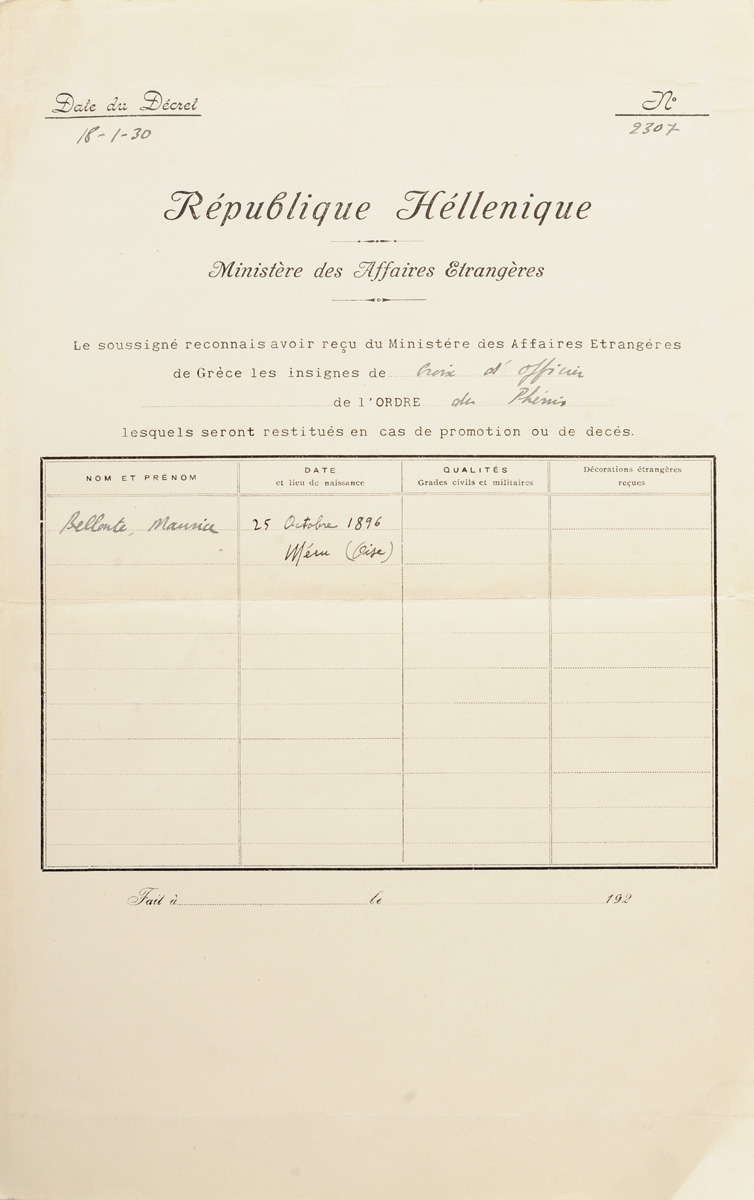 Date du Décret
18-1-30
N°
2307
République Héllenique
Ministère des Affaires Etrangères
Le soussigné reconnais avoir reçu du Ministére des Affaires Etrangéres
de Grèce les insignes de Croix d'Officier
de l'ORDRE du Phénix
lesquels seront restitués en cas de promotion ou de decés.
NOM ET PRÉNOM
DATE
et lieu de naissance
QUALITÉS
Grades civils et militaires
Décorations étrangères
reçues
Bellonte, Maurice
25 Octobre 1896
Méru (Oise)
Fait à le 192